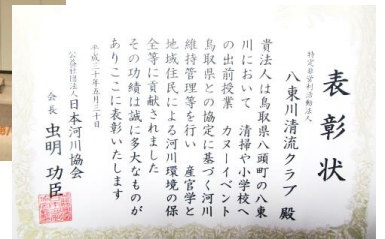 表彰状
特定非営利活動法人
八東川清流クラブ 殿
貴法人は鳥取県八頭町の八東
川において 清掃や小学校へ
の出前授業 カヌーイベント
鳥取県との協定に基づく河川
維持管理等を行い 産官学と
地域住民による河川環境の保
全等に貢献されました
その功績は誠に多大なものが
ありここに表彰いたします
平成二十年五月三十日
公益社団法人日本河川協会
会長 虫明功臣